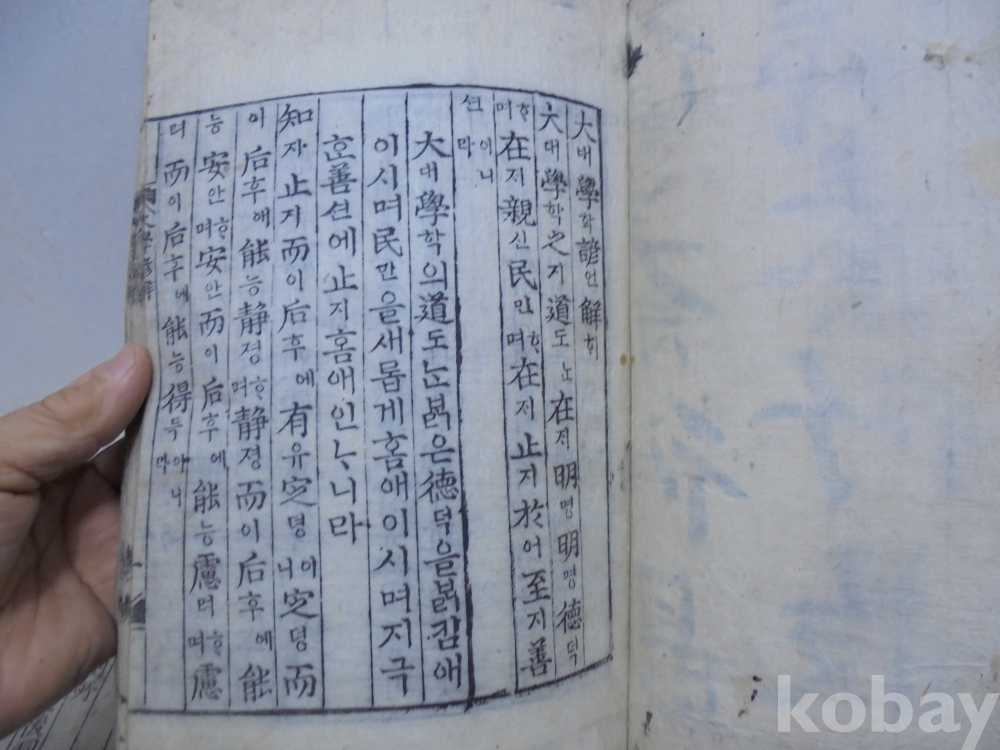 大대學학諺언解ᄒᆡ
大대學학之지道도ᄂᆞᆫ在ᄌᆡ明명明명德덕
ᄒᆞ며在ᄌᆡ親신民민ᄒᆞ며在ᄌᆡ止지於어至지善
션이니라
大대學학의道도ᄂᆞᆫᄇᆞᆰ은德덕을ᄇᆞᆰ킴애
이시며民민을새롭게홈애이시며지극
ᄒᆞᆫ善션에止지홈애인ᄂᆞ니라
知지止지而이后후에有유定뎡이니定뎡而
이后후에能능静졍ᄒᆞ며静졍而이后후에能
능安안ᄒᆞ며安안而이后후에能능慮려ᄒᆞ며慮
려而이后후에能능得득
大學諺解
kobay